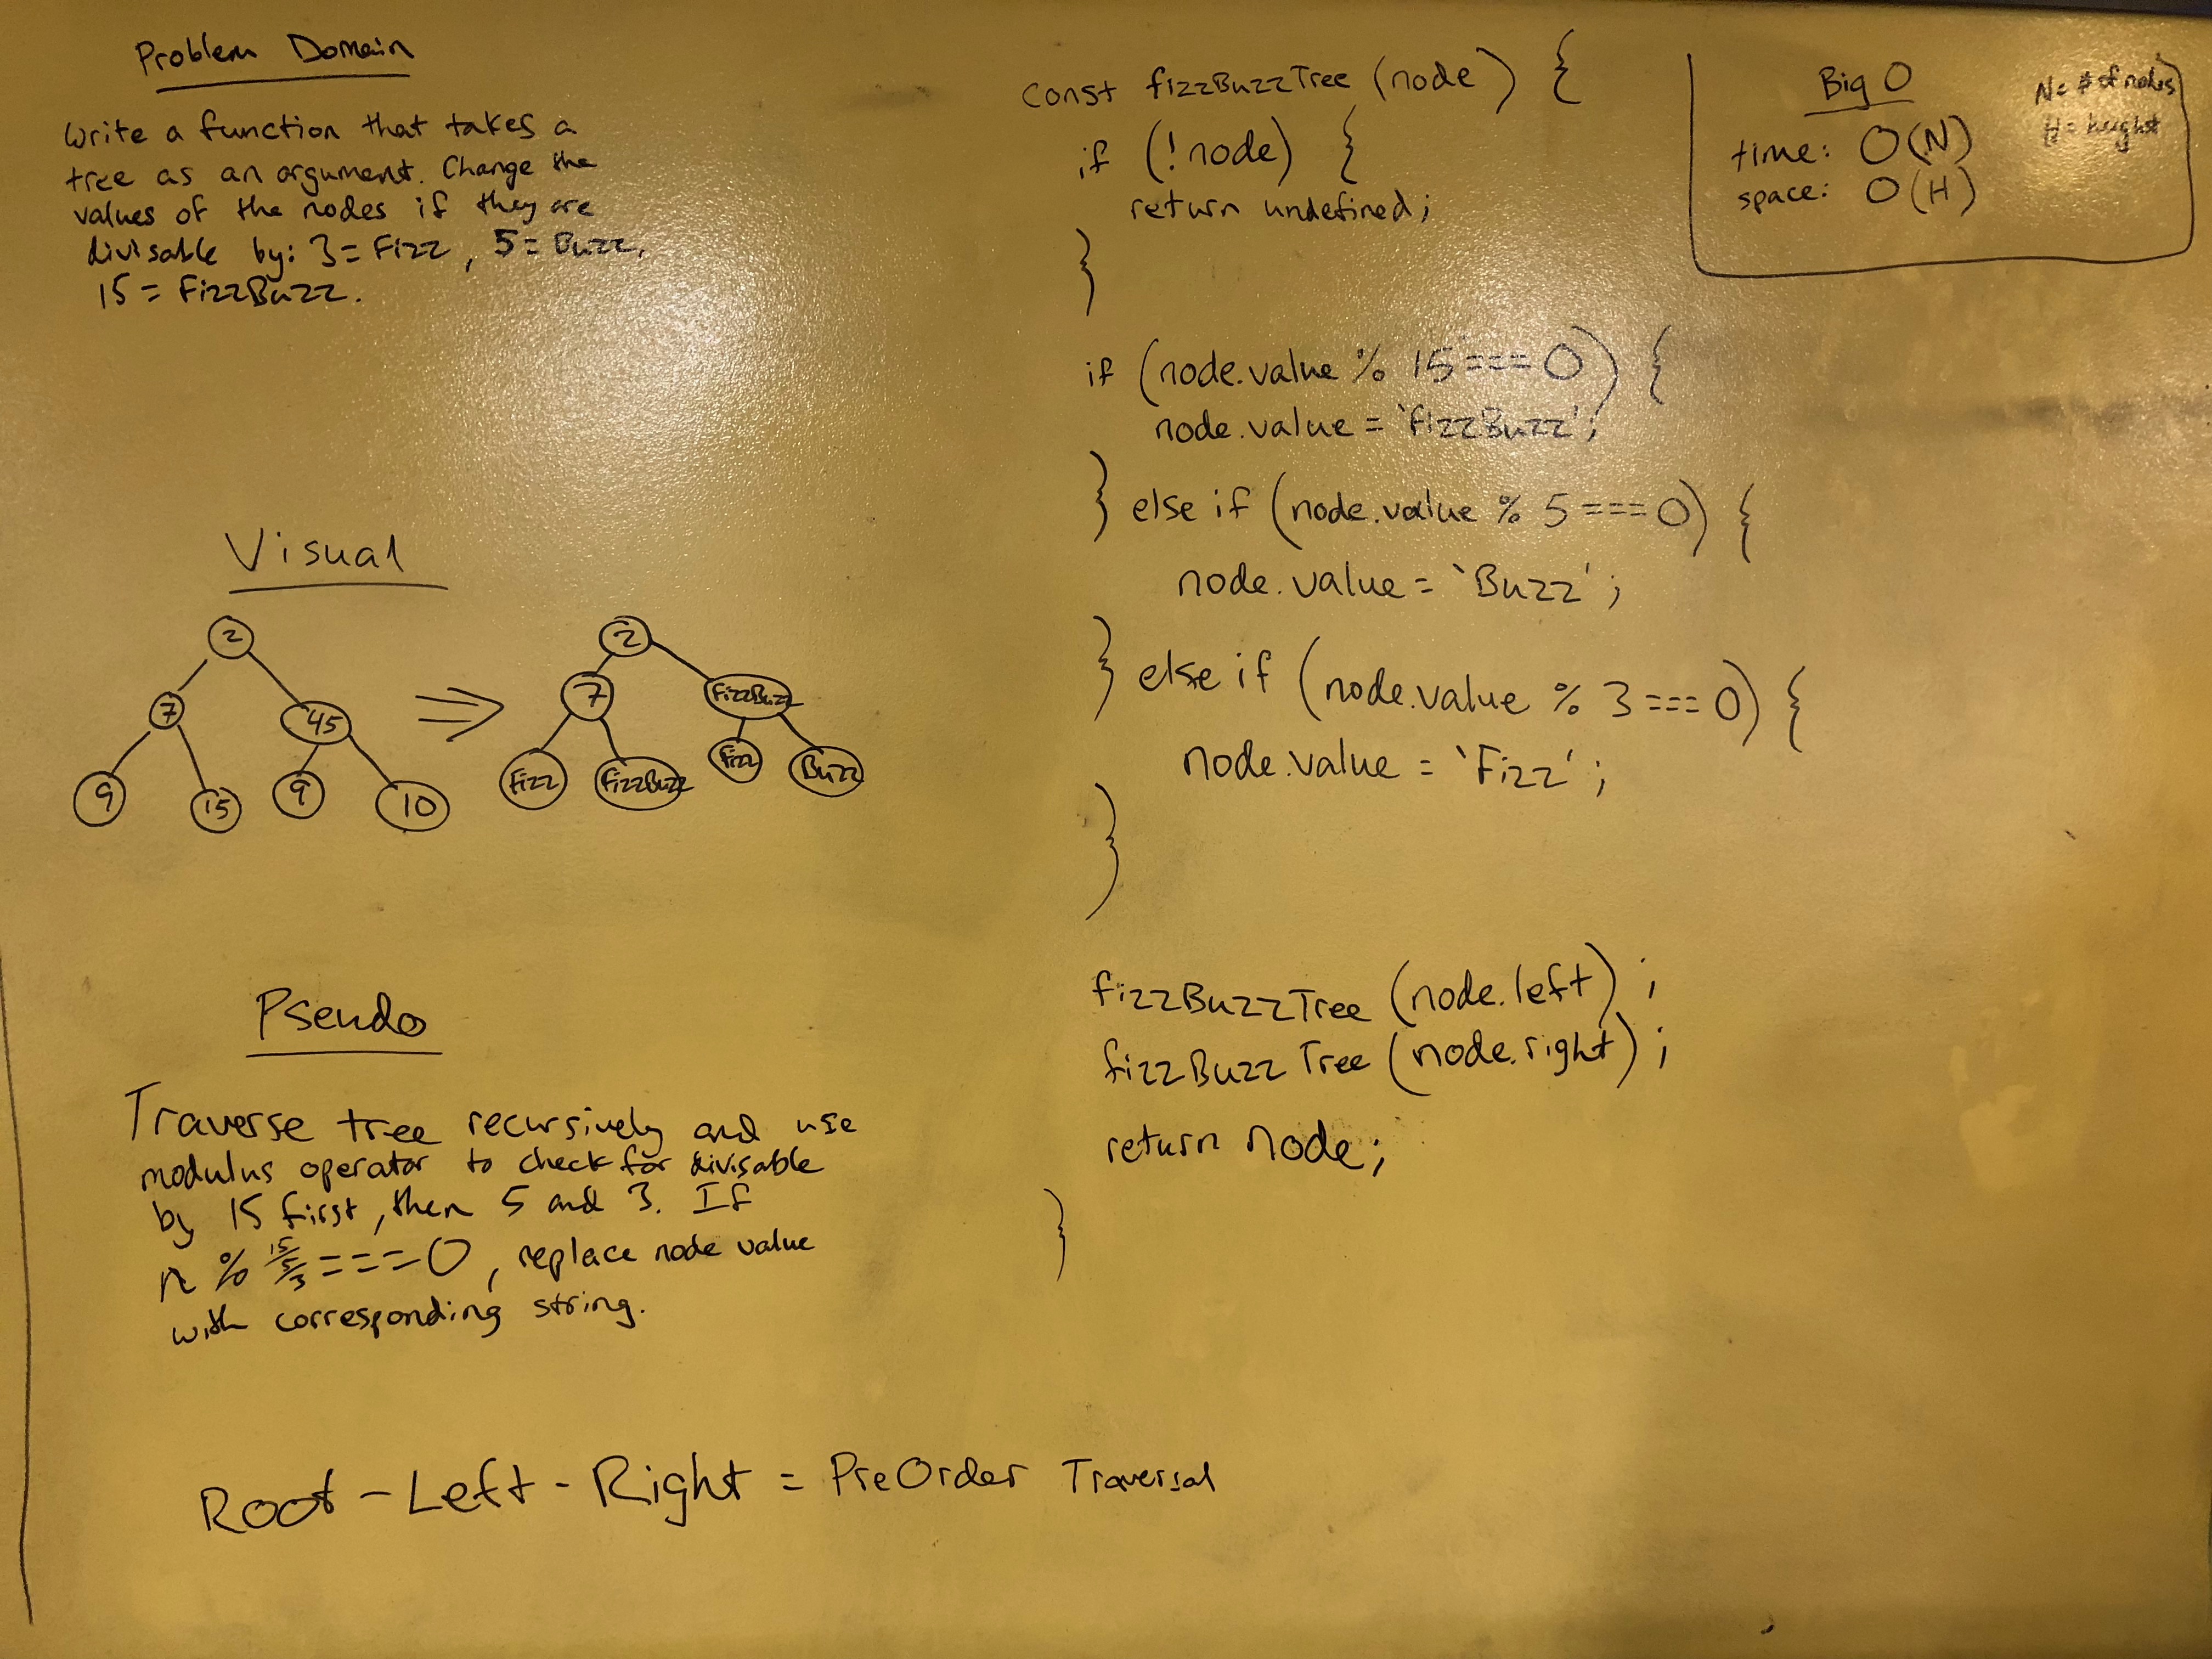 Problem Domain
Write a function that takes a
tree as an argument. Change the
values of the nodes if they are
divisable by: 3 = Fizz, 5 = Buzz,
15 = FizzBuzz.
Visual
2
7
45
9
15
9
10
2
7
FizzBuzz
Fizz
FizzBuzz
Fizz
Buzz
Pseudo
Traverse tree recursively and use
modulus operator to check for divisable
by 15 first, then 5 and 3. If
n % 15/5/3 === 0, replace node value
with corresponding string.
Root - Left - Right = PreOrder Traversal
const fizzBuzzTree (node) {
if (!node) {
return undefined;
}
if (node.value % 15 === 0) {
node.value = 'FizzBuzz';
} else if (node.value % 5 === 0) {
node.value = 'Buzz';
} else if (node.value % 3 === 0) {
node.value = 'Fizz';
}
fizzBuzzTree (node.left);
fizzBuzzTree (node.right);
return node;
}
Big O
time: O(N)
space: O(H)
N = # of nodes
H = height